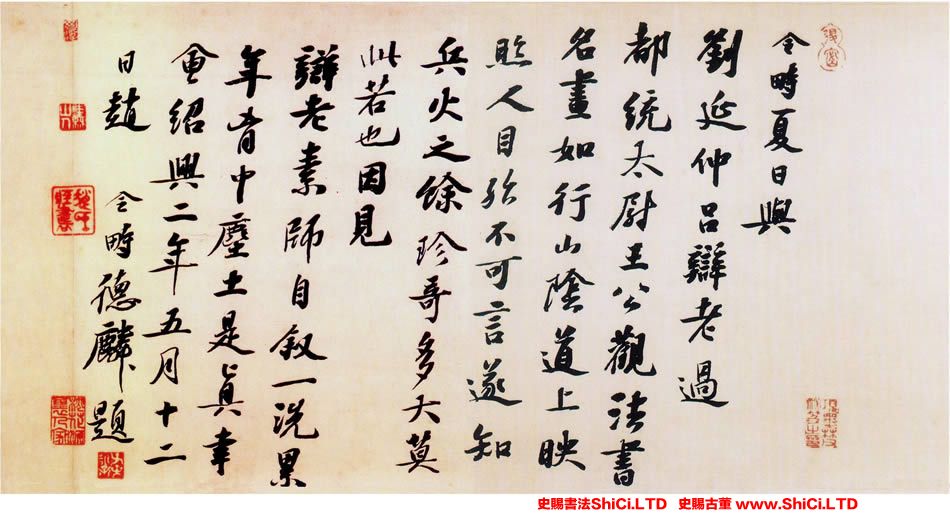 令畤夏日與
劉延仲呂辯老過
都統太尉王公觀法書
名畫如行山陰道上映
照人目殆不可言遂知
兵火之餘珍奇多大莫
此若也因見
辯老素師自叙一洗累
年胷中塵土是真幸
會紹興二年五月十二
日趙令畤德麟題
史賜書法ShiCi.LTD 史賜古董 www.ShiCi.LTD